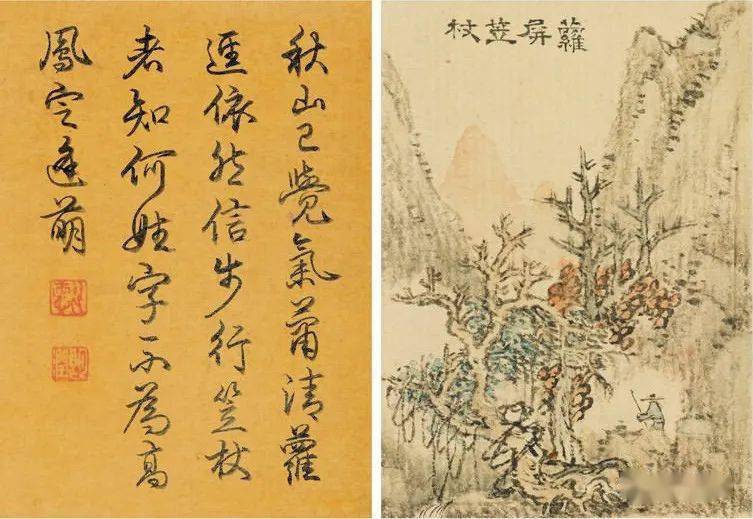 蘿屏笠杖
秋山已覺氣蕭清蘿
逕依然信步行笠杖
者知何姓字不為高
鳳定逢萌